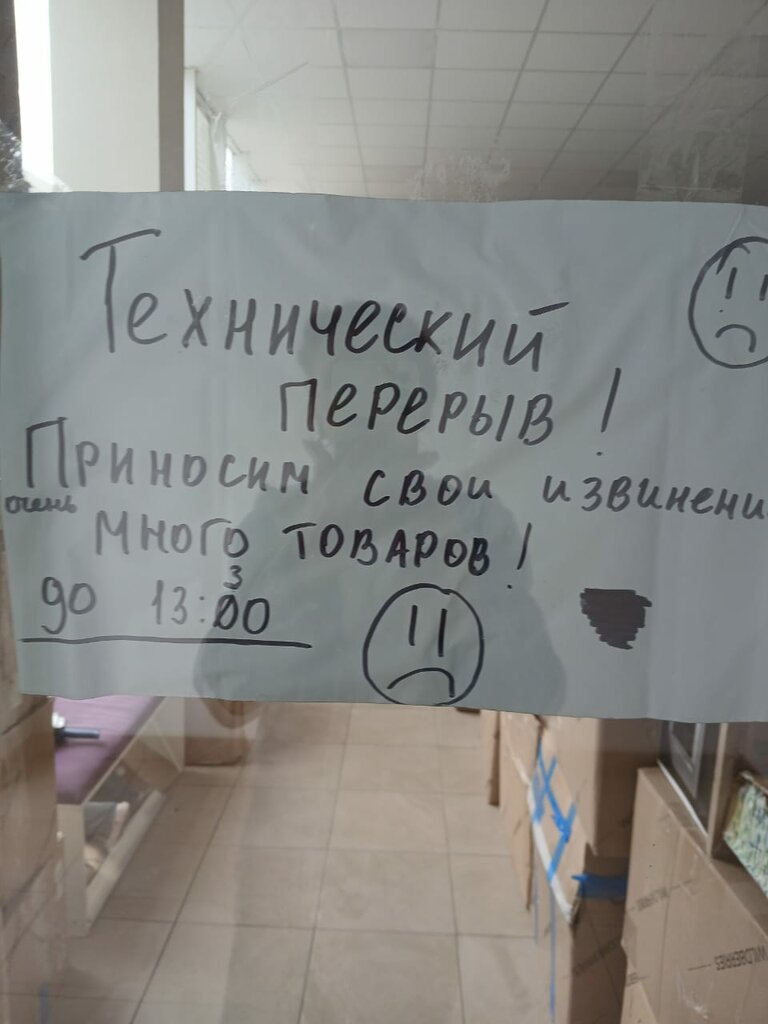 Технический
перерыв!
Приносим свои извинени
очень
много товаров!
3
до 13:00
WILDBERRIES